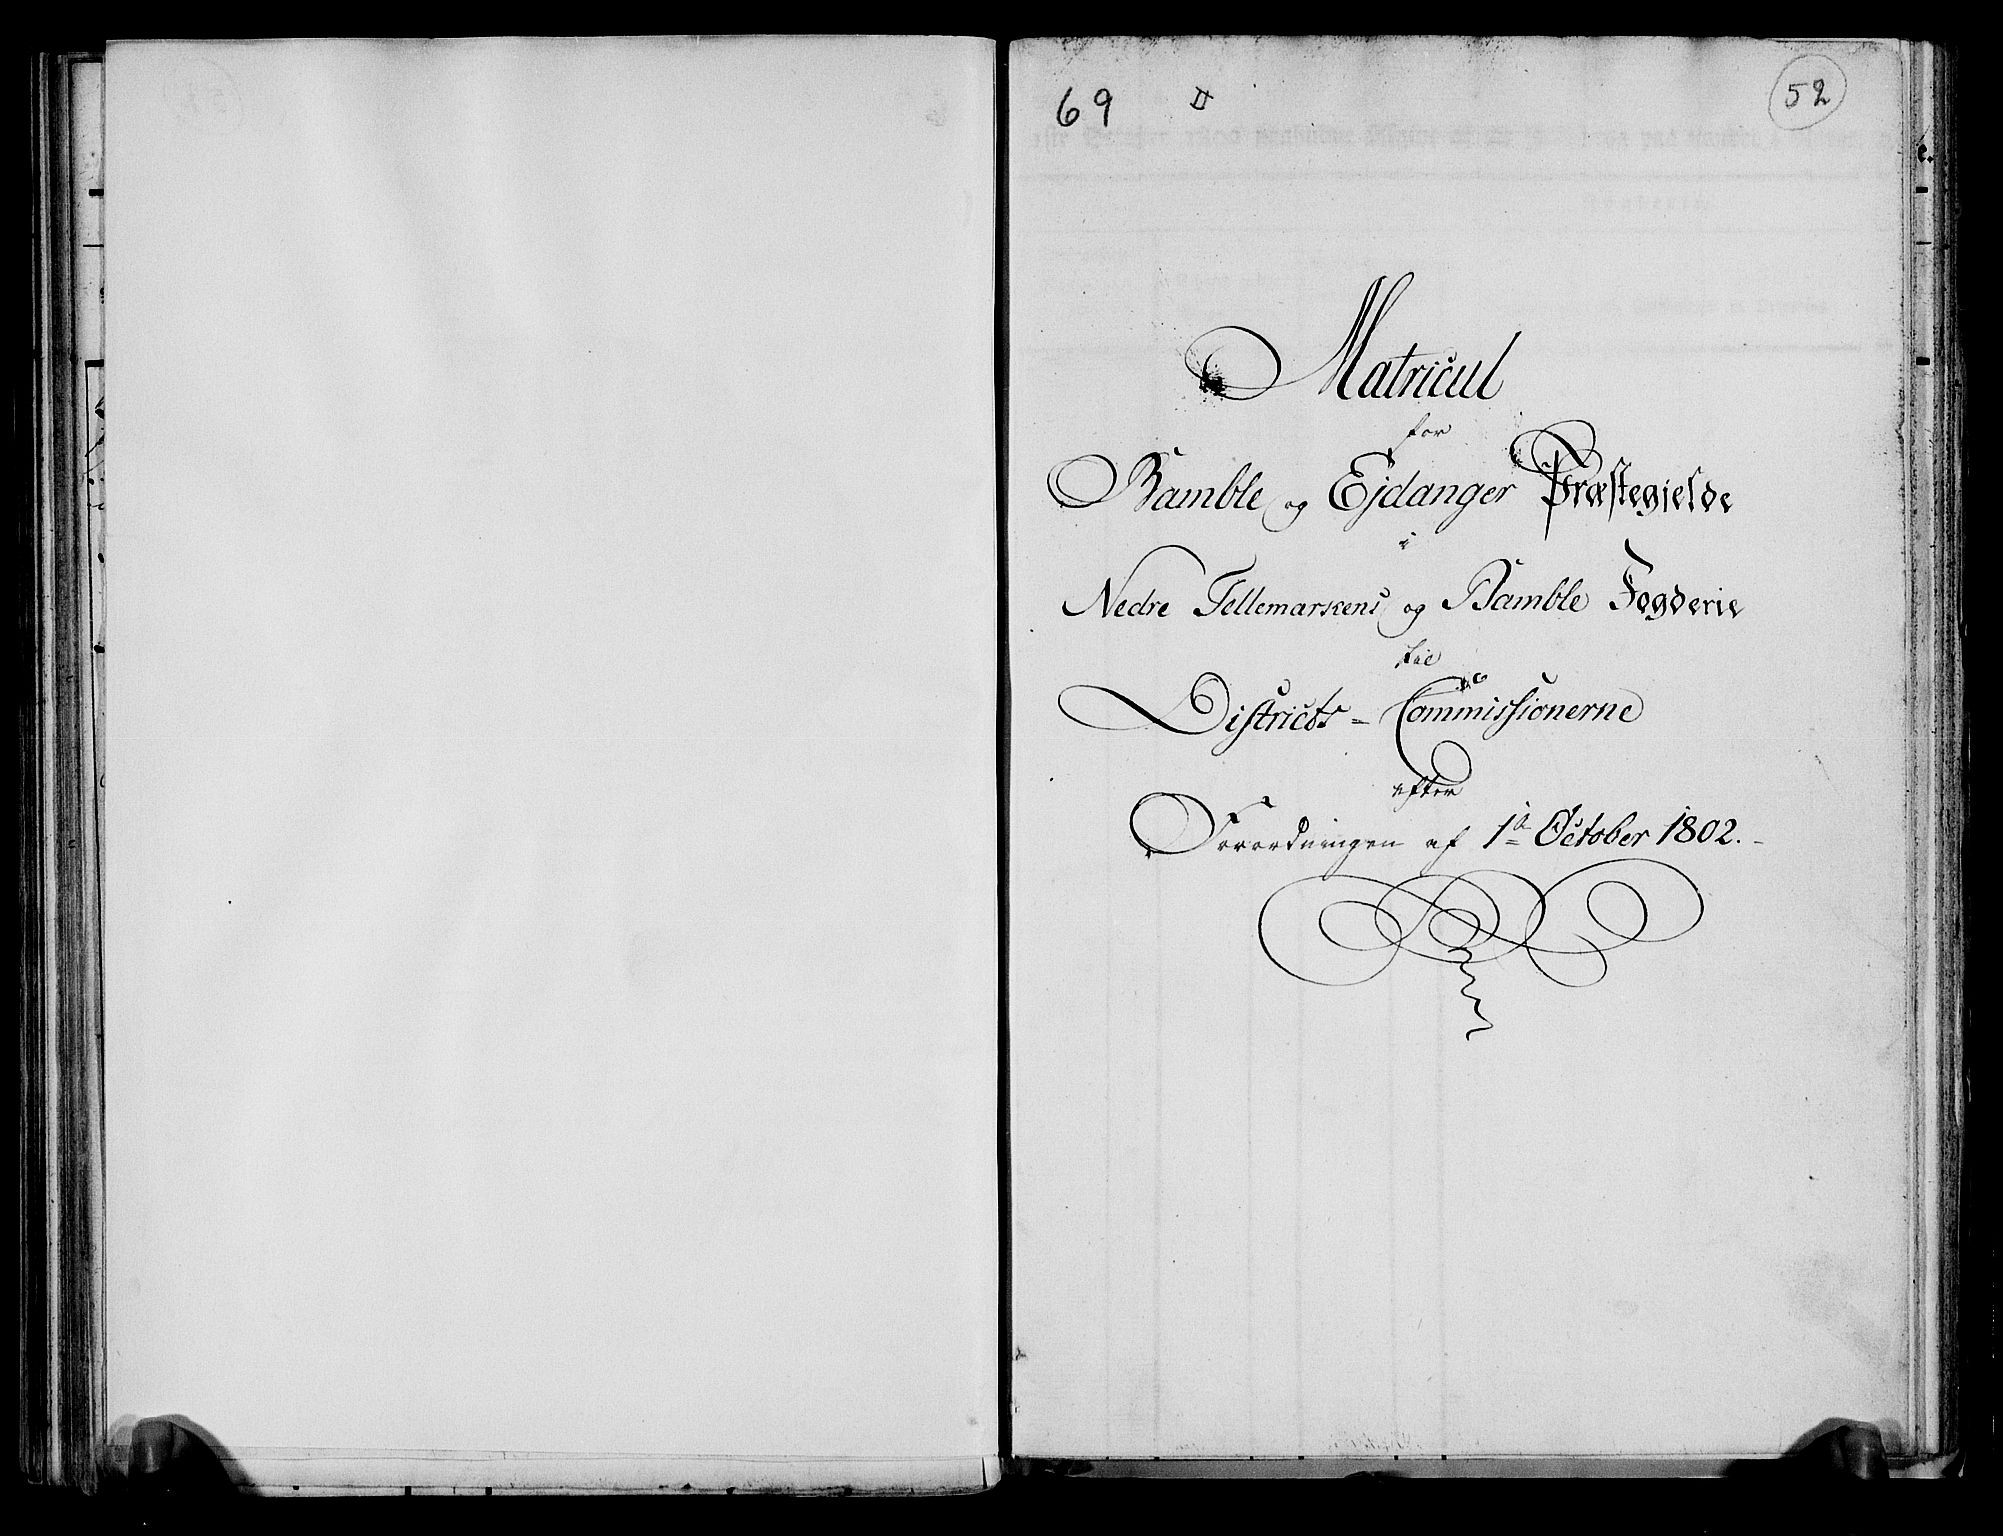 69 II 52
Matricul
for
Bamble og Ejdanger Præstegielde
i
Nedre Tellemarkens og Bamble Fogderie
til
Districts-Commissionerne
efter
Forordningen af 1te October 1802.